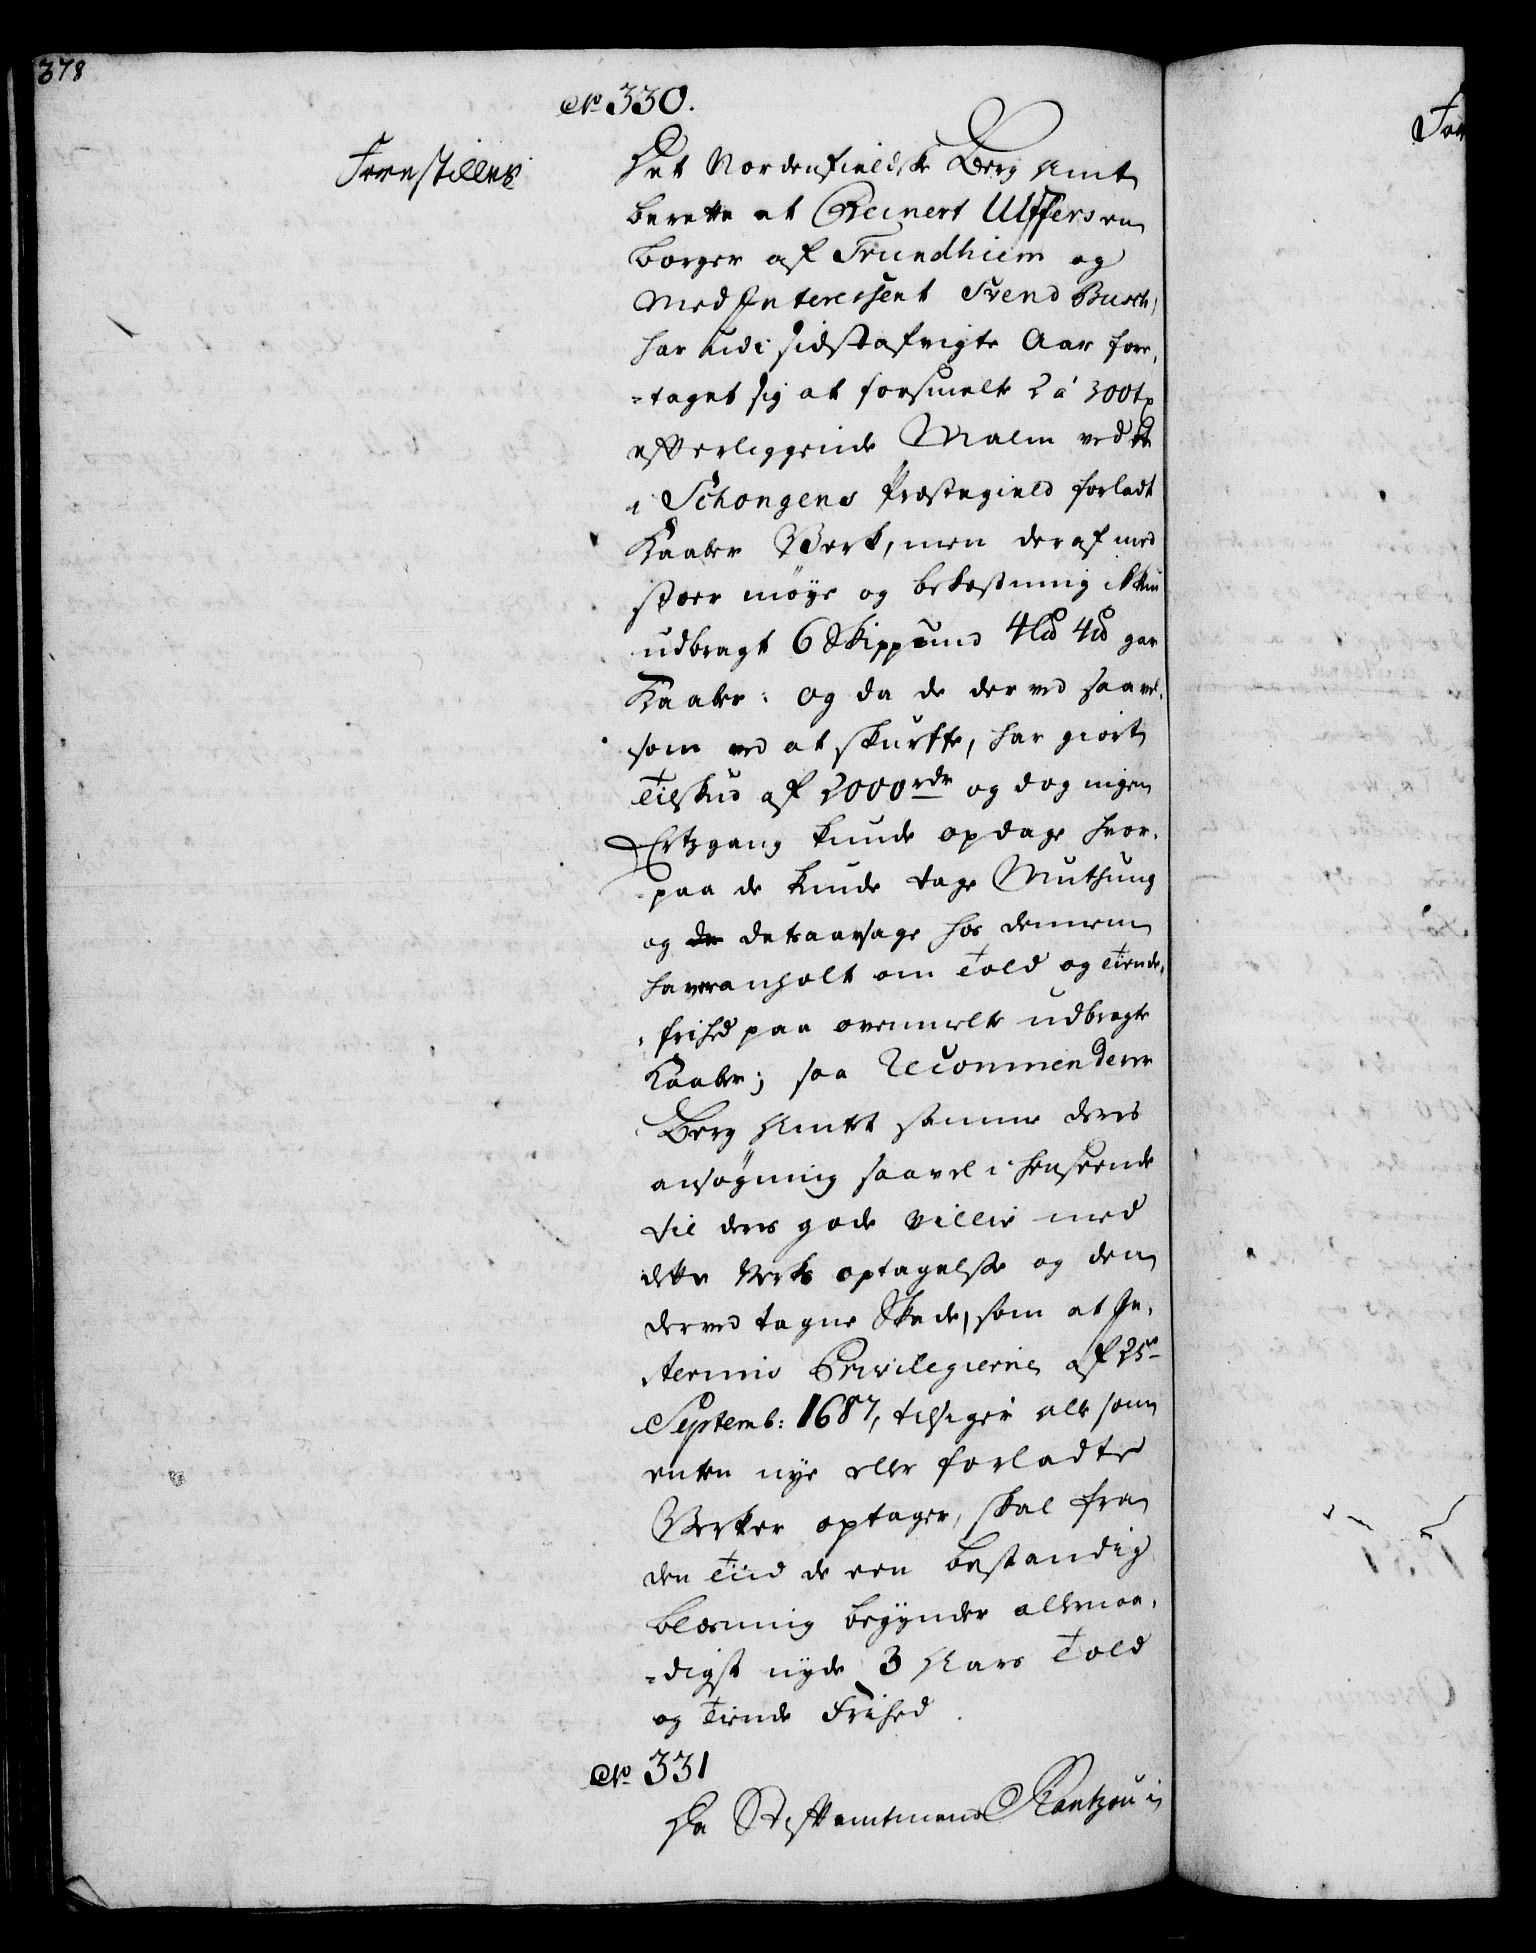 378
No 330.
Forestilles
Det Nordenfieldske Berg Amt
berette at Reinert Ulffers en
borger af Trundhiem og
Med Interessent Svend Busch,
har udi sidstafvigte Aar fore,
-taget sig at forsmelte 2 á 300 tr
efterliggende Malm ved et
i Schongens Præstegield forladt
Kaaber Verk, men deraf med
stoer møye og bekostning ikkun
udbragt 6 Skippund 4 L℔ 4 ℔ gar
Kaaber: og da de derved saavel,
som ved at skurffe, har giort
Tilskud af 2000 rdr og dog ingen
Ertzgang kunde opdage hvor,
-paa de kunde tage Muthung
og detaarsage hos dennem
haver anholt om Told og Tiende,
-frihed paa ovenmelte udbragte
Kaaber; saa Recommenderer
Berg Amtet samme deres
ansøgning saavel i henseende
til deres gode villie med
dette Verks optagelse og den
derved tagne Skade, som at In,
-terims Privilegierne af 25de
Septemb: 1687, tilsiger alle som
enten nye eller forladte
Verker optager, skal fra
den Tiid de een bestandig
blæsning begynder allernaa,
-digst nyde 3 Aars Told
og Tiende Frihed.
No 331
Da Stiftamtmand Rantzou i